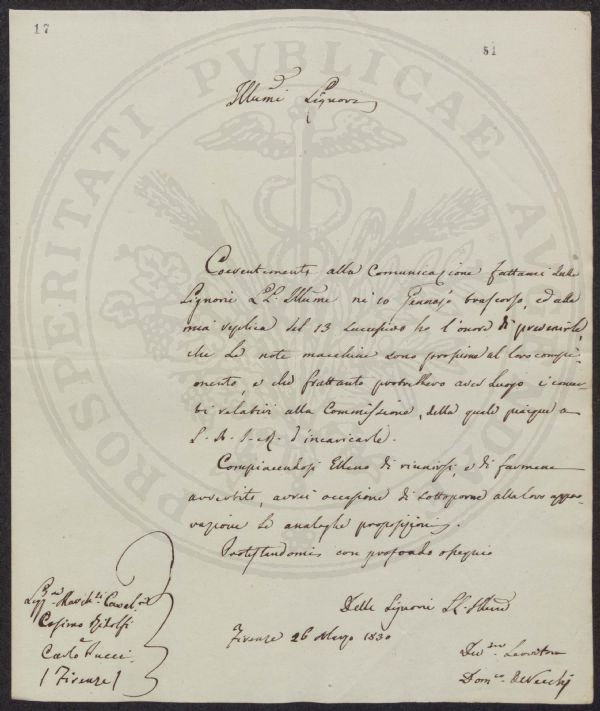 17
81
Illumi Signori
Coerentemente alla Comunicazione fattami dalle
Signorie LL. Illume ne 20 Gennajo trascorso, ed alla
mia replica del 13 successivo ho l'onore di prevenirle,
che le note macchine sono prossime al loro compi-
mento, e che frattanto potrebbero aver luogo i concer-
ti relativi alla Commissione, della quale piacque a
S. A. I. e R. d'incaricarle.
Compiacendosi Elleno di riunirsi, e di farmene
avvertito, avrei occasione di sottoporre alla loro appro-
vazione le analoghe proposizioni.
Protestandomi con profondo ossequio
Delle Signorie LL. Illume
Firenze 26 Marzo 1830
Sigg.
Cosimo Ridolfi
Carlo Pucci
(Firenze)
Dev.mo Servitore
Dom.co de Vecchi
PROSPERITATI PUBLICAE AUGENDAE